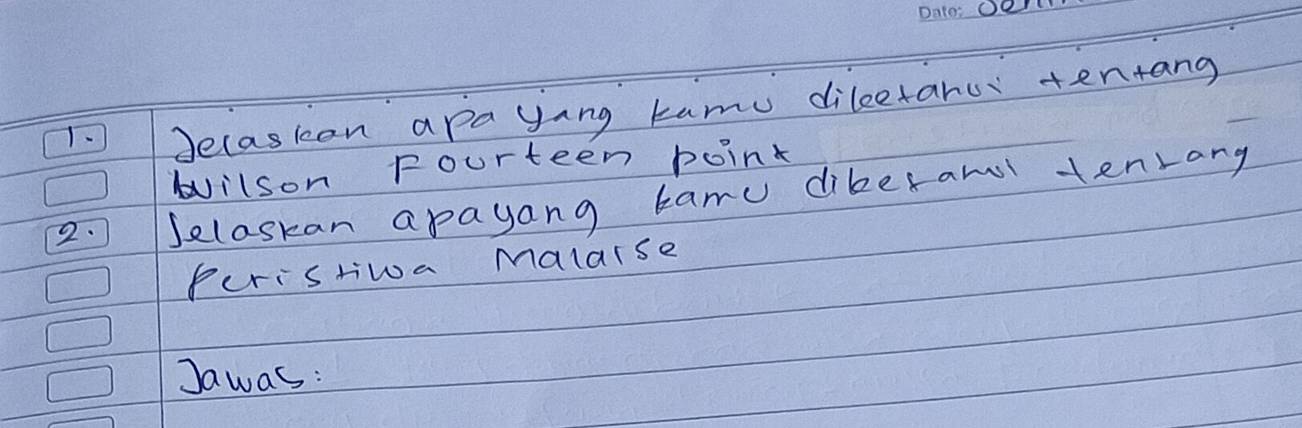 Date: Sen
1. Jelaskan apa yang kamu diketahui tentang
Wilson Fourteen point
2. Jelaskan apa yang kamu diketahui tentang
Peristiwa Malaise
Jawab: